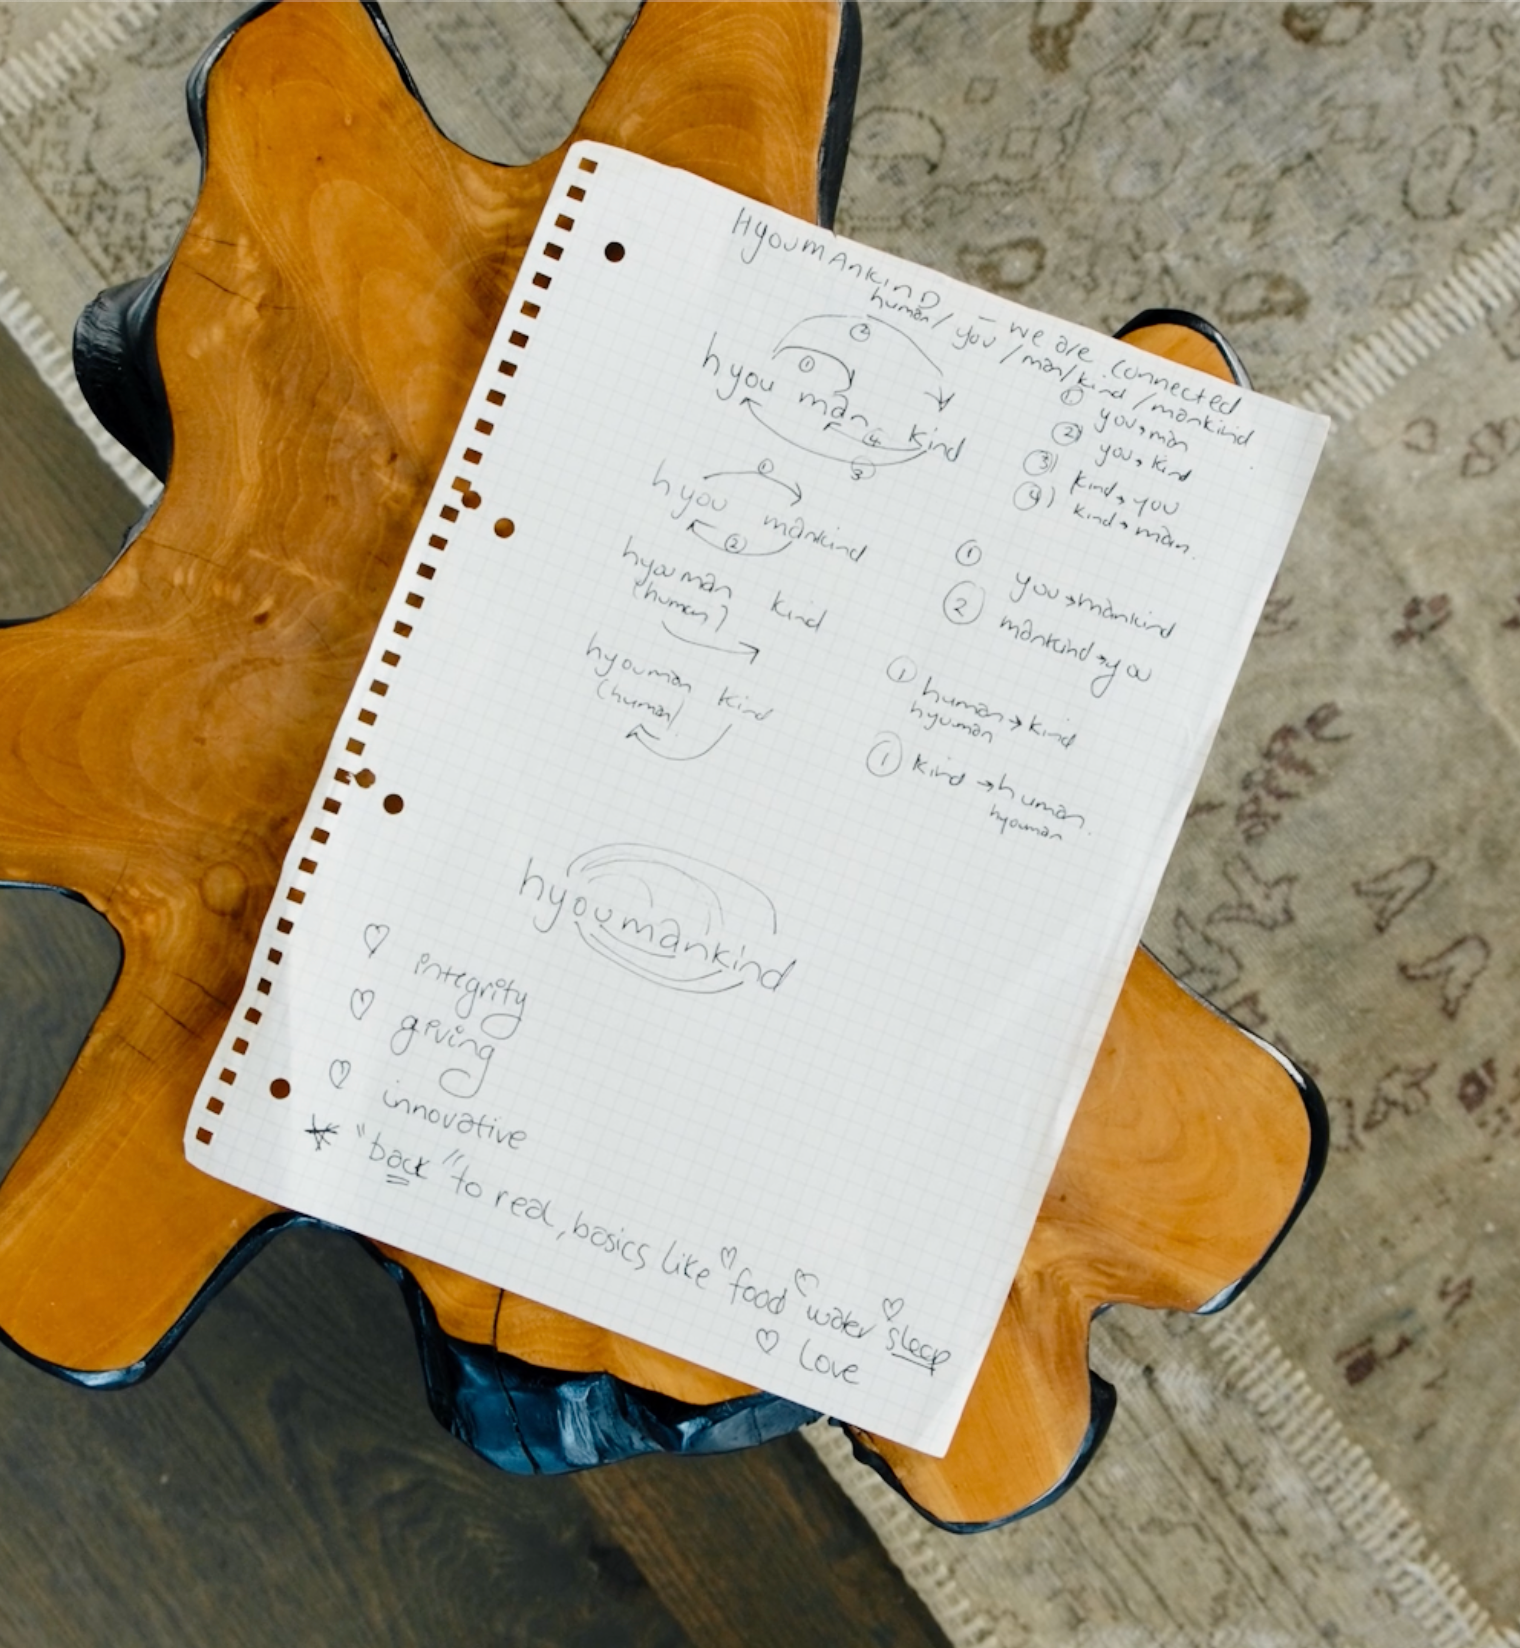 HyoumAnkinD - we are connected
human / you / man / kind / mankind
② 
①
hyou man kind
④
③
① you → man
② you → kind
③) kind → you
④) kind → man.
①
hyou mankind
②
① you → mankind
② mankind → you
hyouman kind
(human)
① human → kind
hyuman
hyouman kind
(human)
① kind → human.
hyouman
hyoumankind
♡ integrity
♡ giving
♡ innovative
* "back" to real, basics like ♡ food ♡ water ♡ sleep
♡ Love